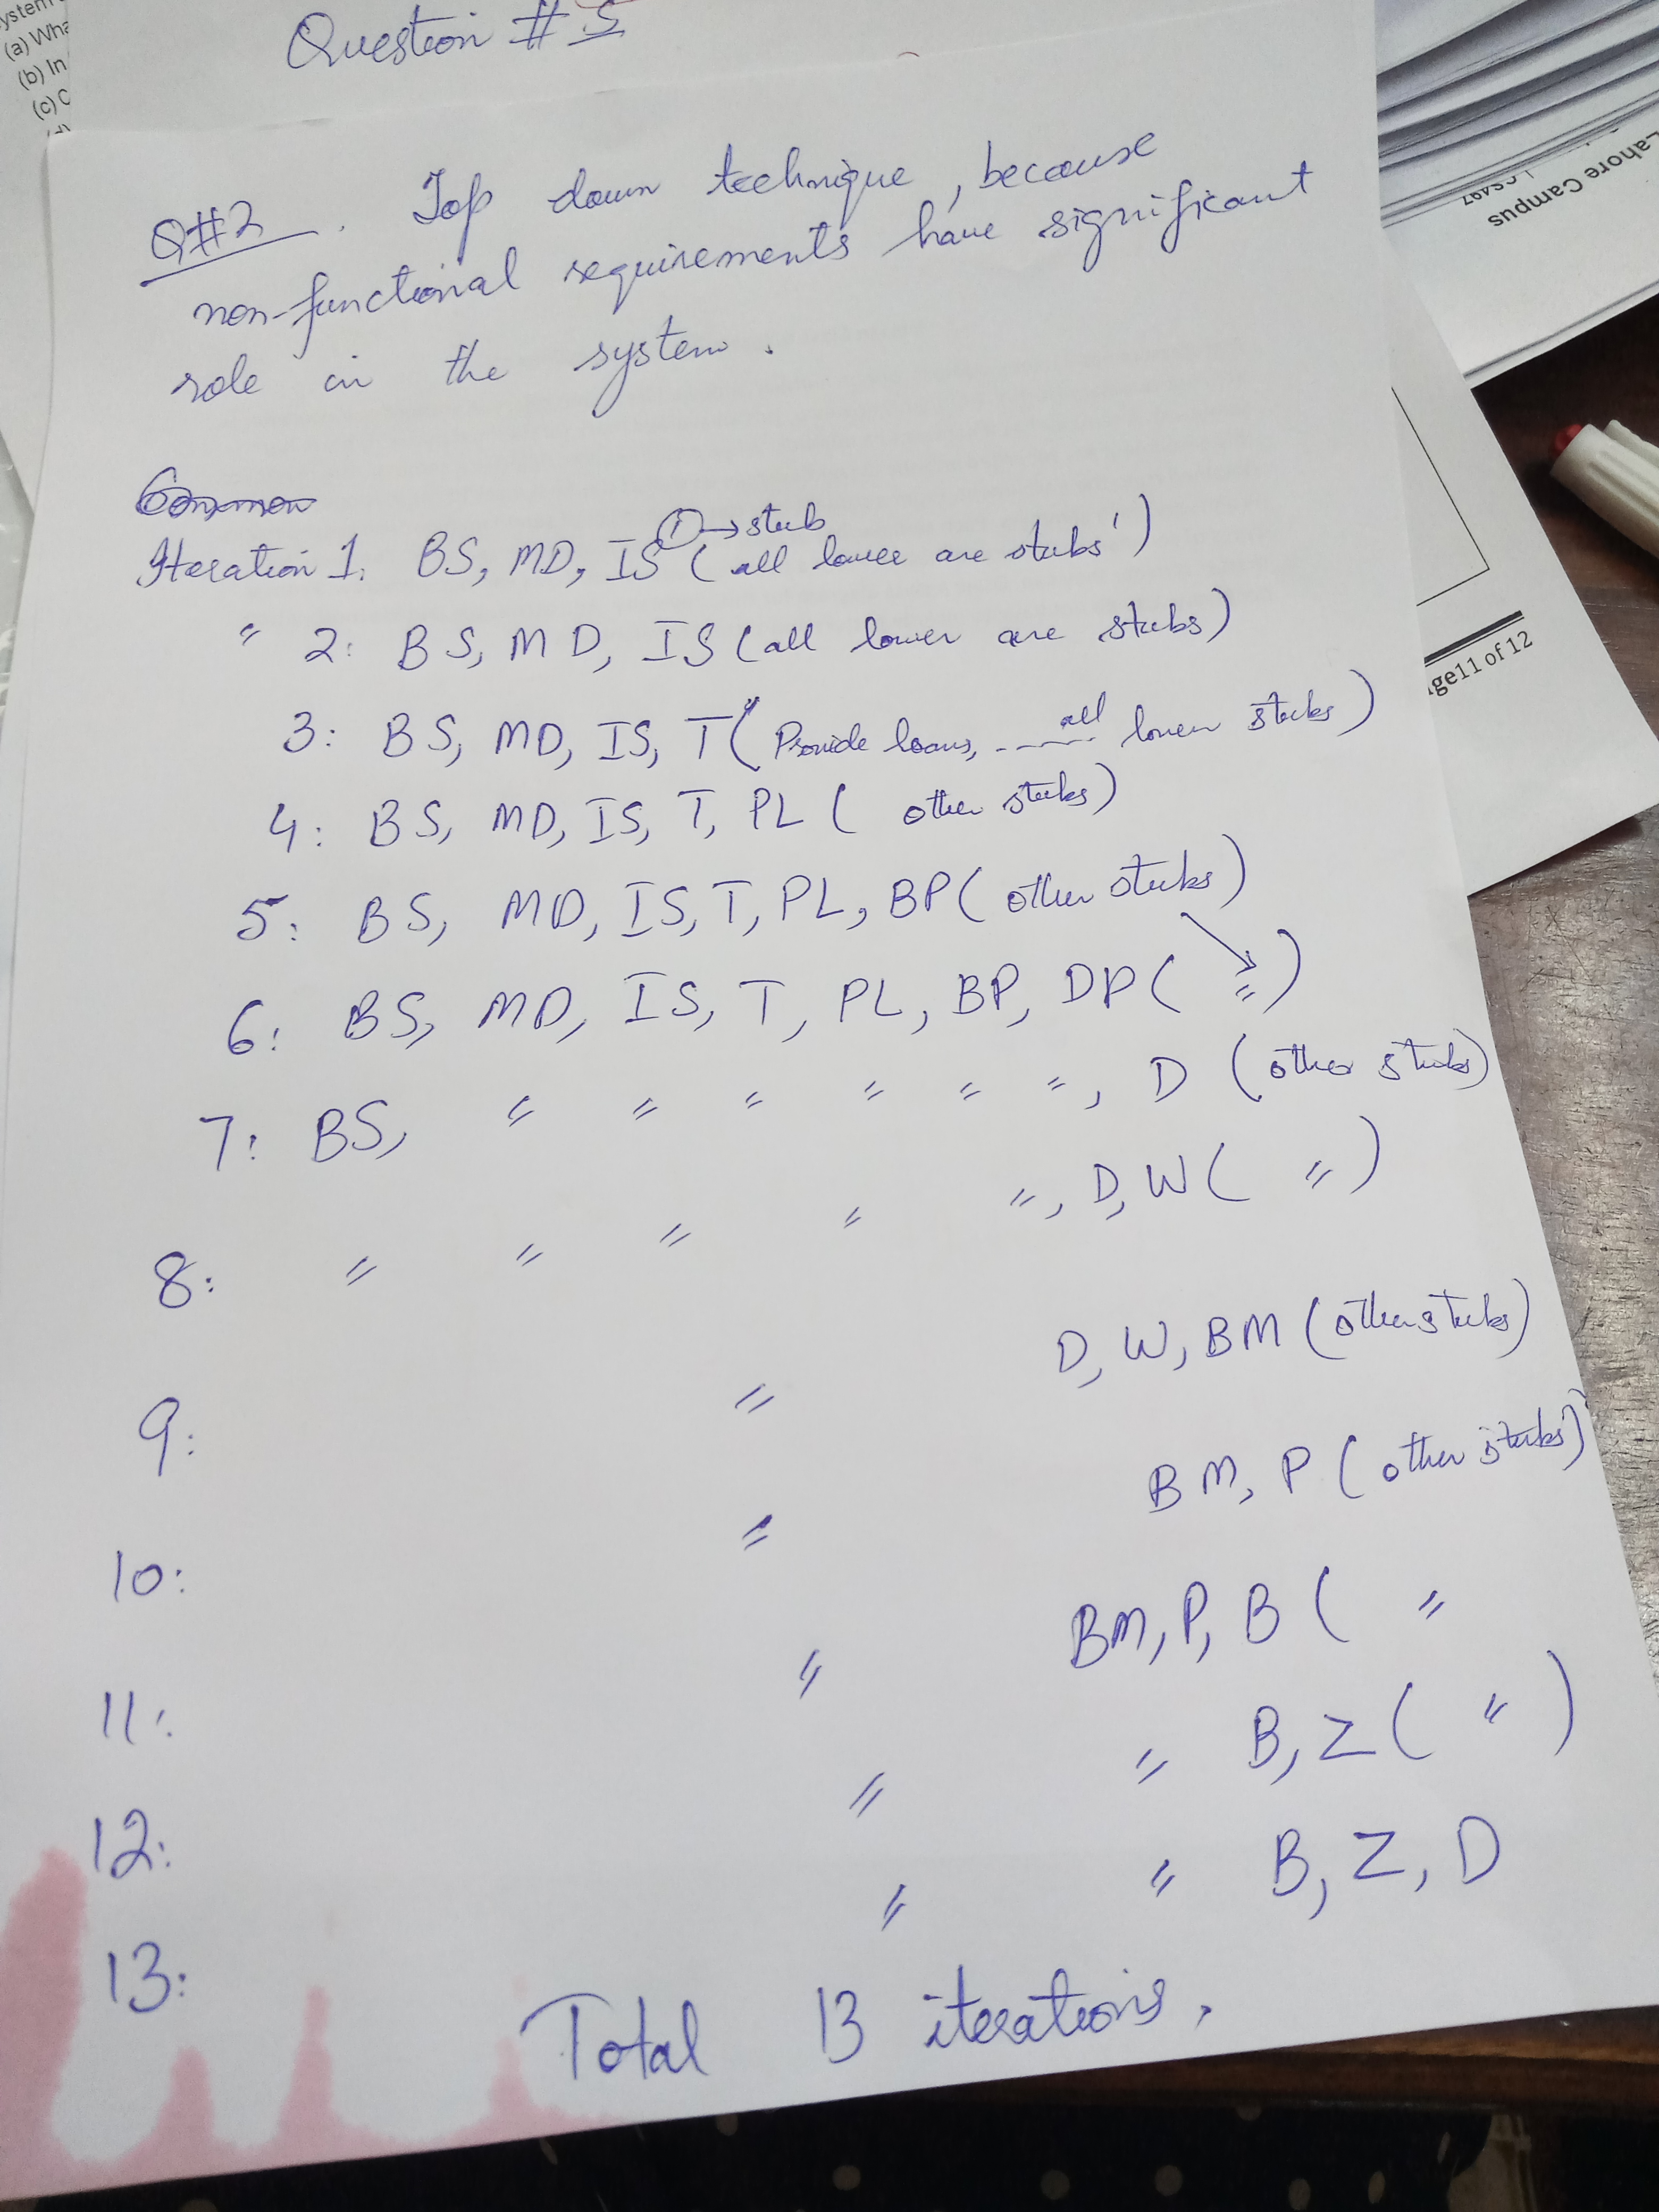 ystem
(a) Wha
(b) In
(c) C
Question # 5
Lahore Campus
Q#2. Top down technique, because
non-functional requirements have significant
role in the system.
Common
Iteration 1. BS, MD, IS (all lower are stubs')
① → stub
" 2: BS, MD, IS (all lower are stubs)
3: BS, MD, IS, T (Provide loans, ------ all lower stubs)
4: BS, MD, IS, T, PL ( other stubs)
5: BS, MD, IS, T, PL, BP ( other stubs)
6: BS, MD, IS, T, PL, BP, DP ( " )
7: BS, " " " " " ", D (other stubs)
8: " " " " ", D, W ( " )
9: " D, W, BM (other stubs)
10: " BM, P ( other stubs)
11: " BM, P, B ( "
12: " " B, Z ( " )
13: " " B, Z, D
Total 13 iterations.
age11 of 12